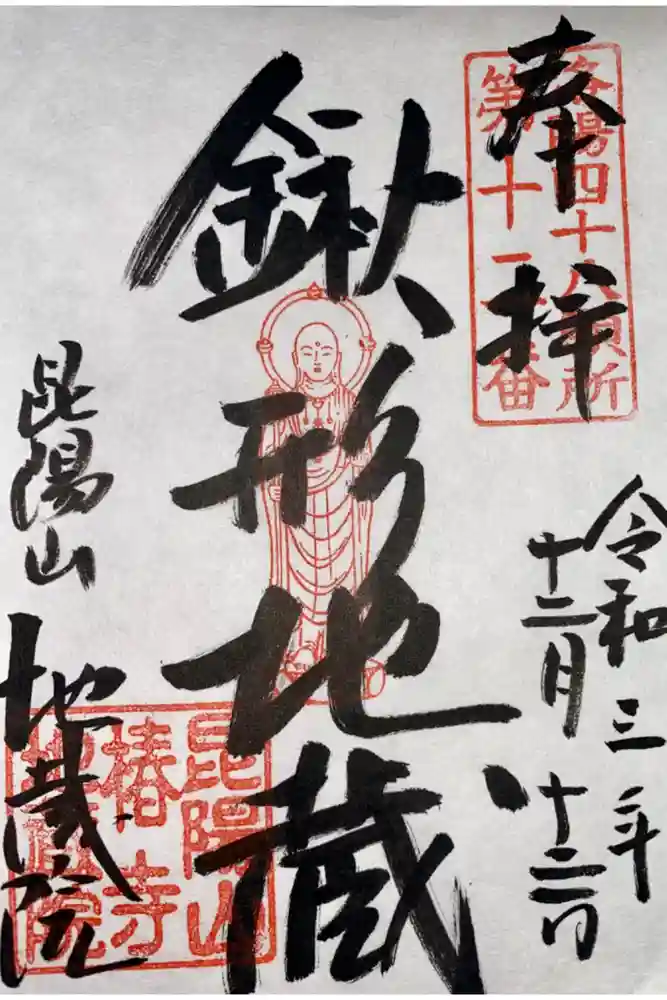 奉拝
洛陽四十八願所
第十
令和三年
十二月十二日
鍬形地蔵
昆陽山
地蔵院
昆陽山
椿寺
地蔵院